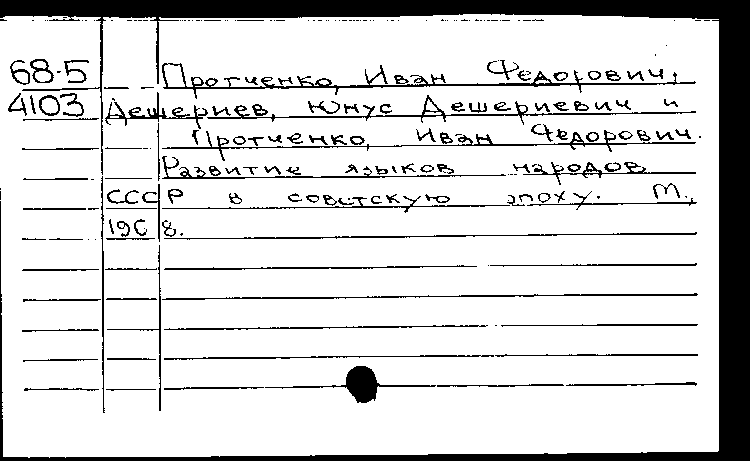 68-5 Протченко, Иван Федорович;
4103 Дешериев, Юнус Дешериевич и
Протченко, Иван Федорович.
Развитие языков народов
СССР в советскую эпоху. М.,
1968.